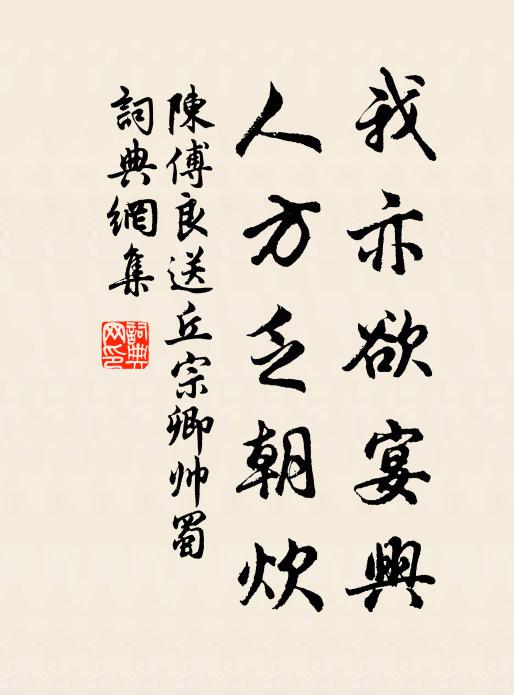 我亦欲宴興
人方乏朝炊
陳傅良送丘宗卿帅蜀
詞典網集
詞典网印